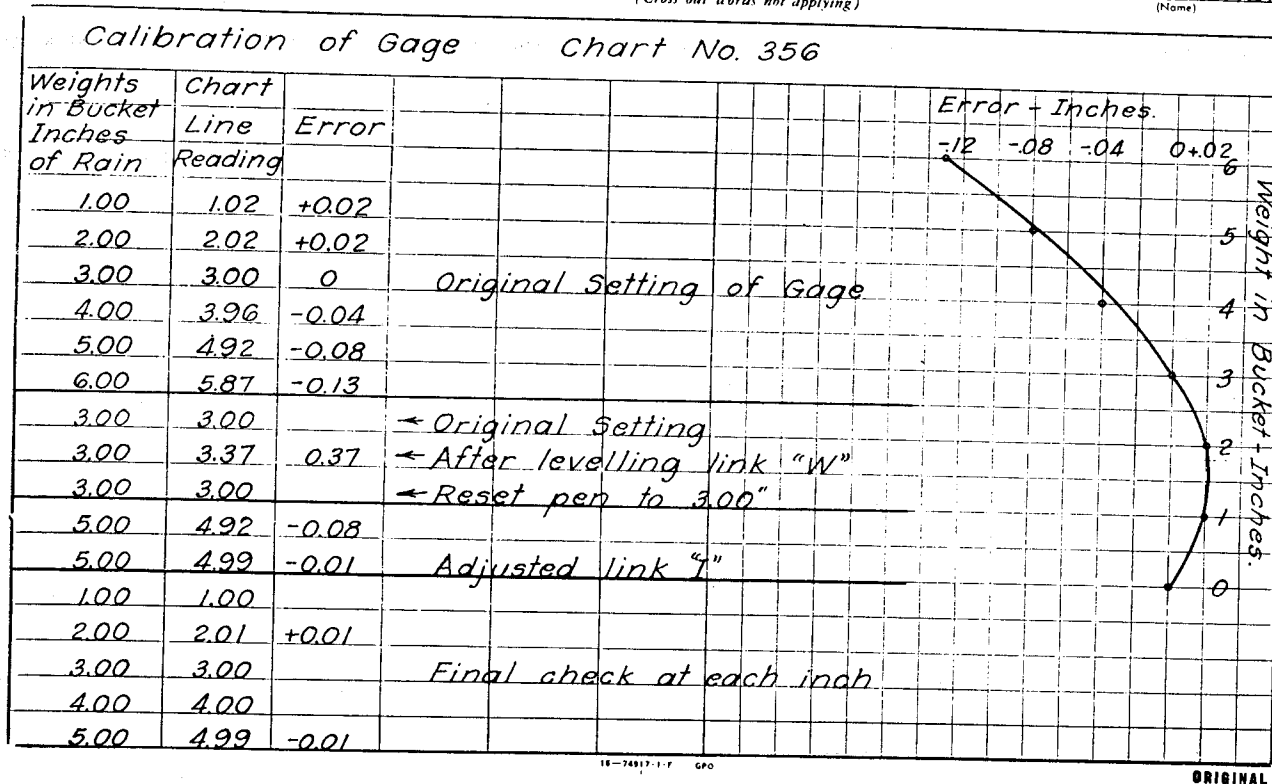 (Cross out words not applying)
(Name)
Calibration of Gage Chart No. 356
Weights in Bucket Inches of Rain
Chart Line Reading
Error
1.00 1.02 +0.02
2.00 2.02 +0.02
3.00 3.00 0
4.00 3.96 -0.04
5.00 4.92 -0.08
6.00 5.87 -0.13
Original Setting of Gage
3.00 3.00 ← Original Setting
3.00 3.37 0.37 ← After levelling link "W"
3.00 3.00 ← Reset pen to 3.00"
5.00 4.92 -0.08
5.00 4.99 -0.01 Adjusted link "I"
1.00 1.00
2.00 2.01 +0.01
3.00 3.00 Final check at each inch
4.00 4.00
5.00 4.99 -0.01
Error - Inches.
-.12 -.08 -.04 0 +.02
6
5
4
3
2
1
0
Weight in Bucket - Inches.
16—74917-1-F GPO
ORIGINAL